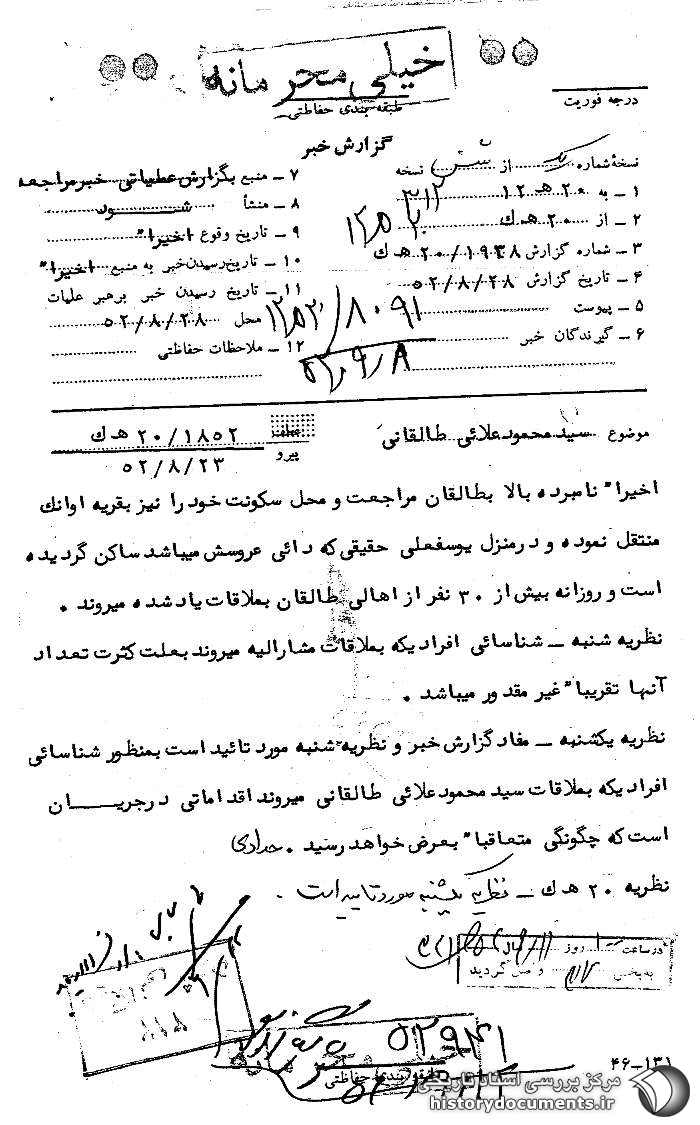 خیلی محرمانه
طبقه بندی حفاظتی
درجه فوریت
گزارش خبر
نسخهٔ شماره یک از شش نسخه
۱ – به ۲۰ هـ ۱۲ ۳۱۲
۲ – از ۲۰ هـ ك
۳ – شماره گزارش ۲۰/۱۹۳۸ هـ ك
۴ – تاریخ گزارش ۵۲/۸/۲۸
۵ – پیوست
۶ – گیرندگان خبر
۷ – منبع بگزارش عطیاتی خبر مراجعه
۸ – منشأ شود
۹ – تاریخ وقوع اخیرا"
۱۰ – تاریخ رسیدن خبر به منبع اخیرا"
۱۱ – تاریخ رسیدن خبر برهبر عملیات
محل ۵۲/۸/۲۸
۱۲ – ملاحظات حفاظتی
۸۰۹۱
۵۲/۹/۸
موضوع سید محمود علائی طالقانی
عطف ۲۰/۱۸۵۲ هـ ك
پیرو ۵۲/۸/۲۳
اخیرا" نامبرده بالا بطالقان مراجعت و محل سکونت خود را نیز بقریه اوانك
منتقل نموده و درمنزل یوسفعلی حقیقی که دائی عروسش میباشد ساکن گردیده
است و روزانه بیش از ۳۰ نفر از اهالی طالقان بملاقات یاد شده میروند .
نظریه شنبه – شناسائی افرادیکه بملاقات مشارالیه میروند بعلت کثرت تعداد
آنها تقریبا" غیر مقدور میباشد .
نظریه یکشنبه – مفاد گزارش خبر و نظریه شنبه مورد تائید است بمنظور شناسائی
افرادیکه بملاقات سید محمود علائی طالقانی میروند اقداماتی درجریان
است که چگونگی متعاقبا" بعرض خواهد رسید . حدادی
نظریه ۲۰ هـ ك – نظریه یکشنبه مورد تایید است .
در ساعت ۱۰ روز
به بخش ۳۱۲ واصل گردید
۵۲۹۴۱
طبقه بندی حفاظتی
۴۶–۱۳۱
مرکز بررسی اسناد تاریخی
historydocuments.ir